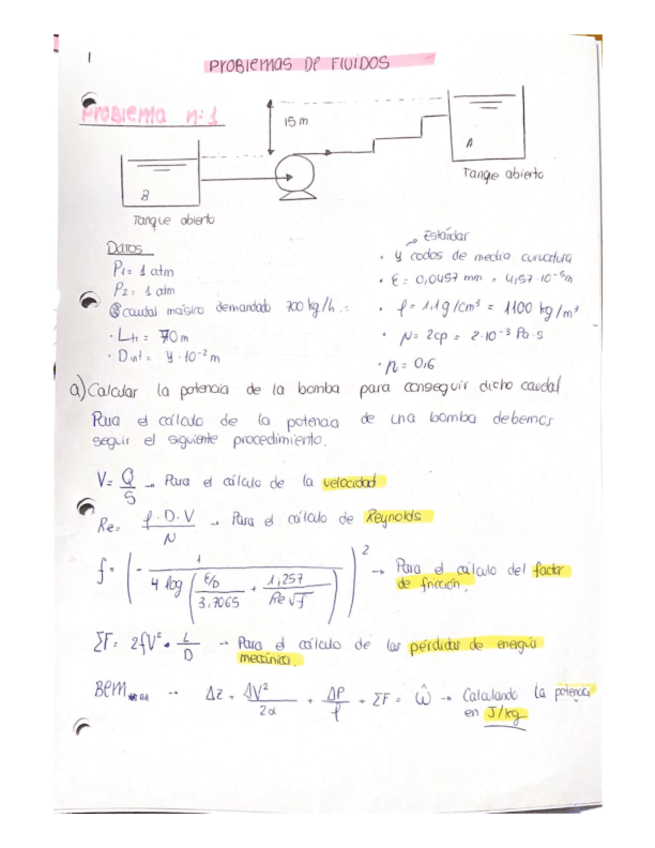 1
Problemas de Fluidos
Problema nº 1
15 m
A
Tanque abierto
B
Tanque abierto
Datos
P1 = 1 atm
P2 = 1 atm
caudal másico demandado 700 kg/h.
· Ltr = 70 m
· Dint = 4·10⁻² m
→ Estándar
· 4 codos de media curvatura
· ε = 0,0457 mm = 4,57·10⁻⁵ m
· ρ = 1,1 g/cm³ = 1100 kg/m³
· μ = 2cp = 2·10⁻³ Pa·s
· η = 0,6
a) Calcular la potencia de la bomba para conseguir dicho caudal
Para el cálculo de la potencia de una bomba debemos
seguir el siguiente procedimiento.
V = Q/S → Para el cálculo de la velocidad
Re = ρ·D·V/μ → Para el cálculo de Reynolds
f = (- 1 / 4 log (ε/D / 3,7065 + 1,257 / Re√f))² → Para el cálculo del factor
de fricción.
ΣF = 2fV² · L/D → Para el cálculo de las pérdidas de energía
mecánica.
BEM → Δz + ΔV²/2α + ΔP/ρ + ΣF = ŵ → Calculando la potencia
en J/kg